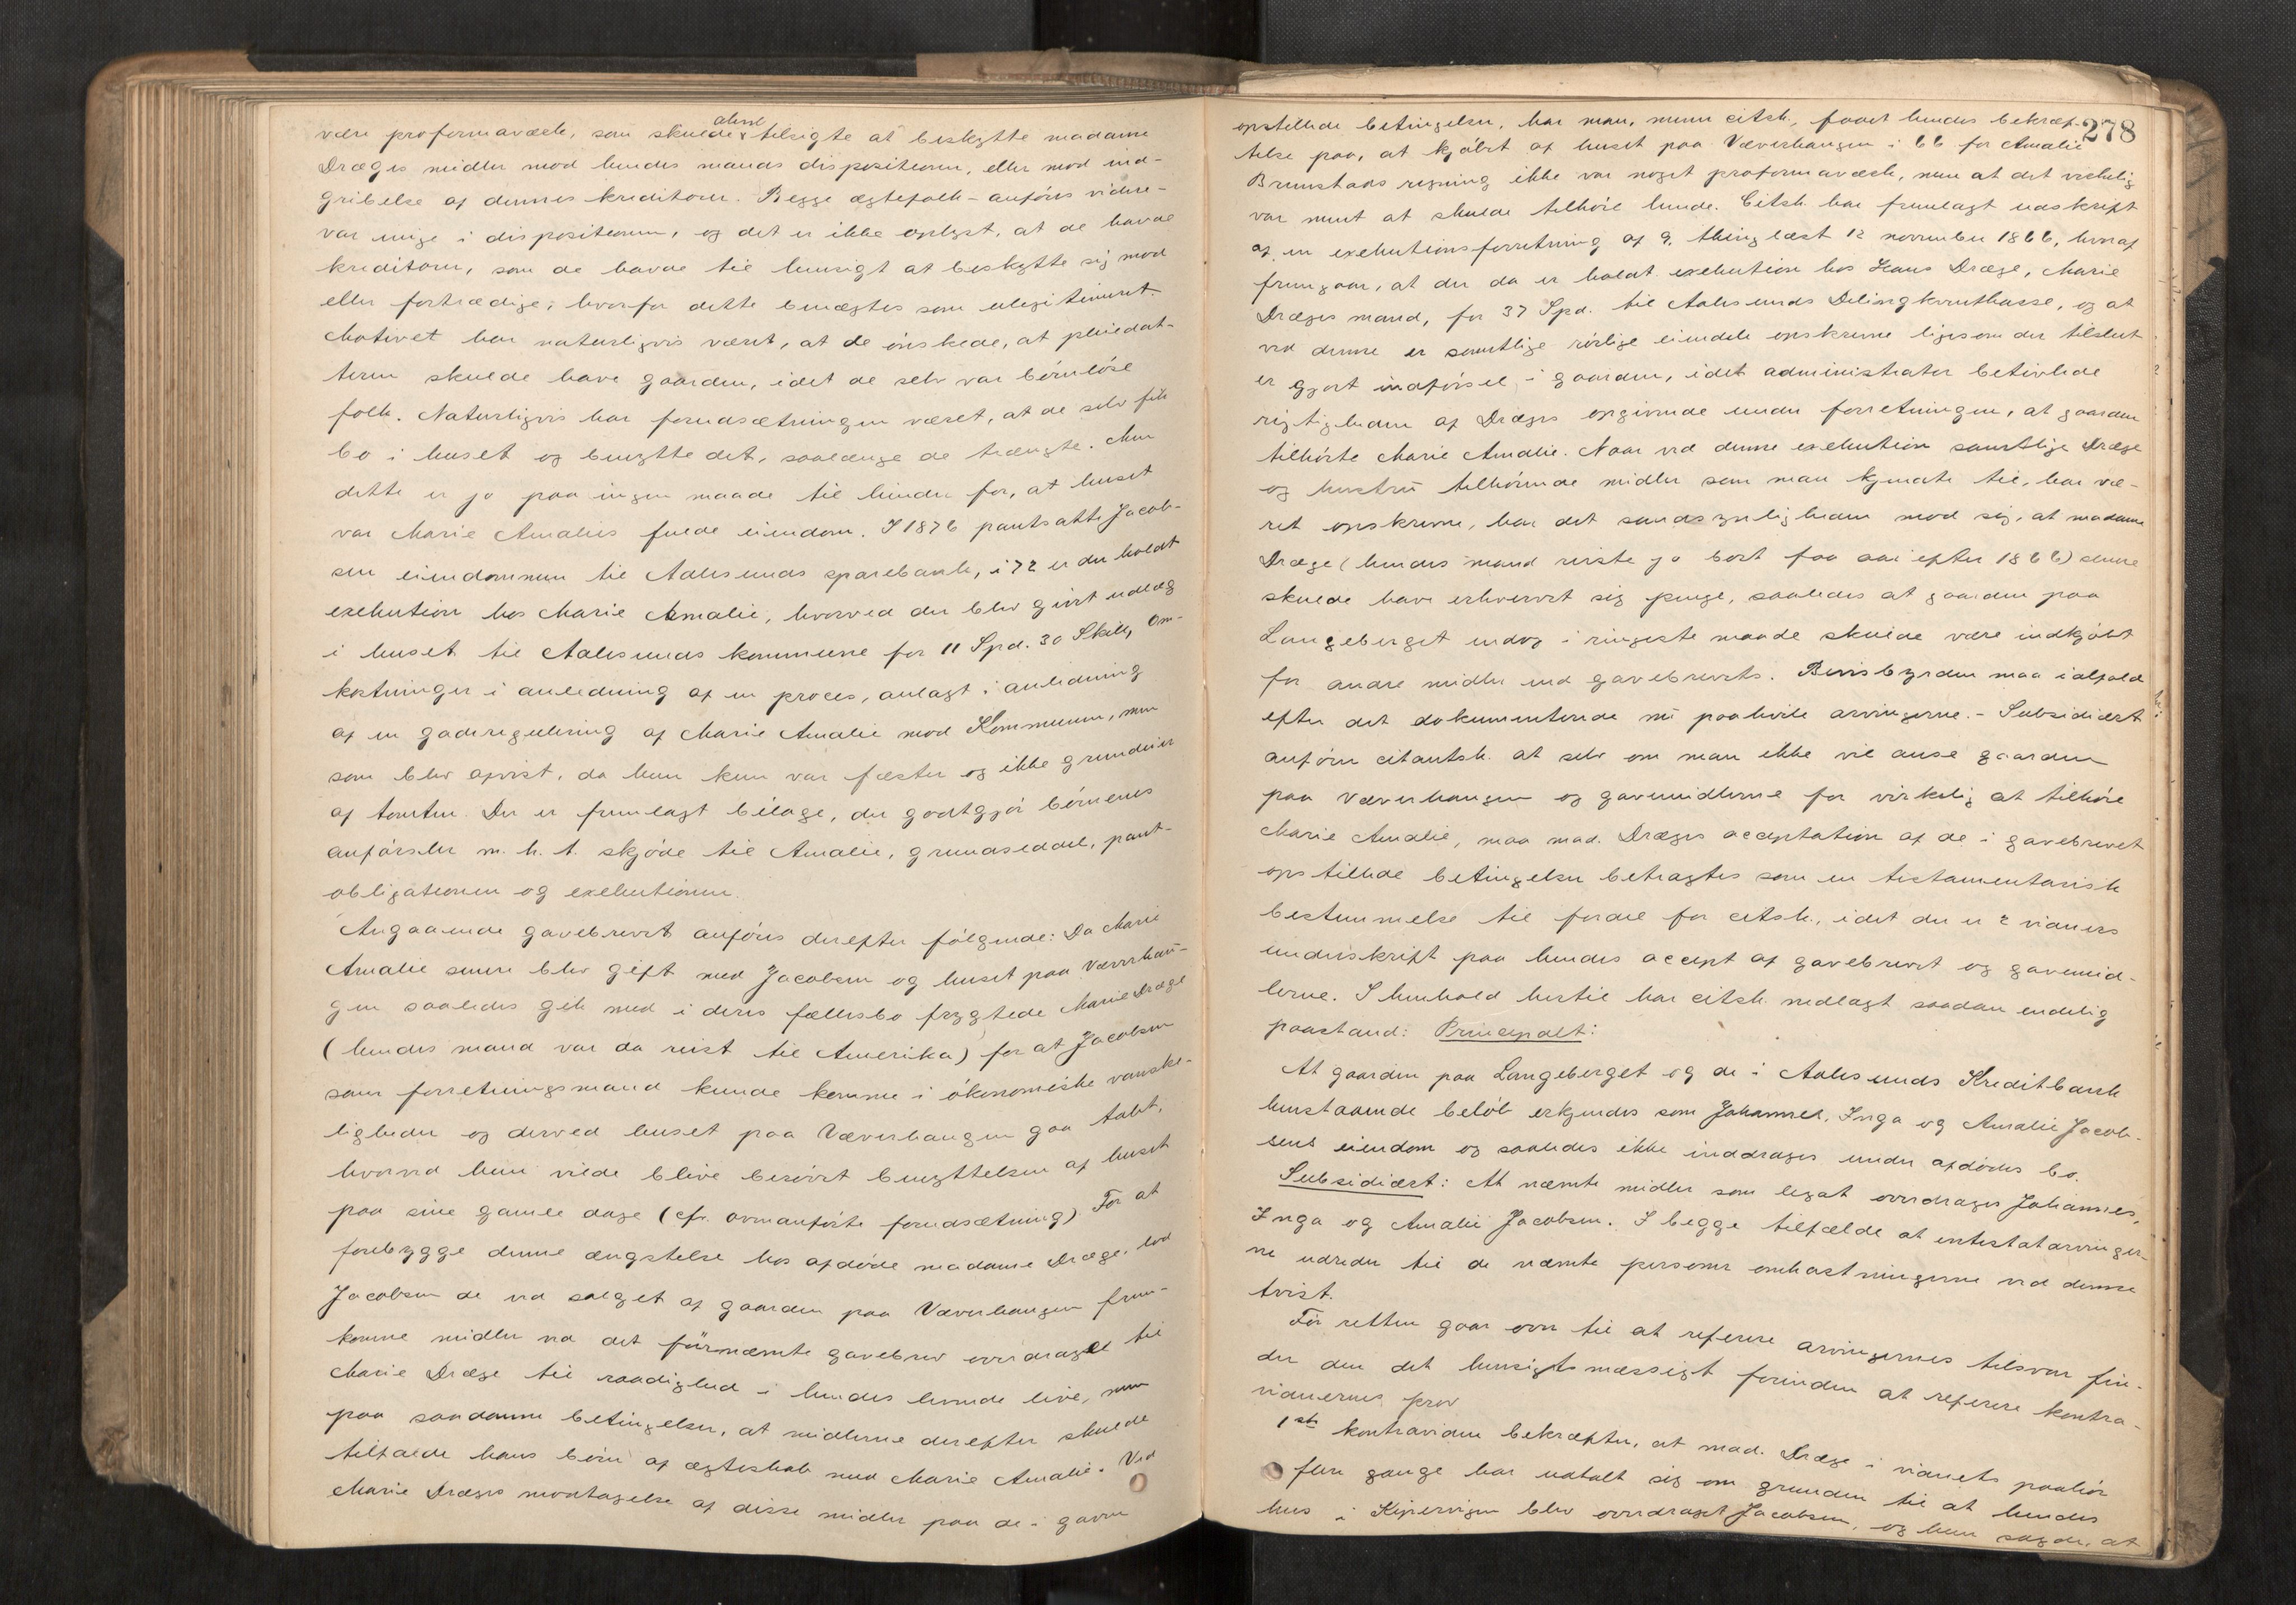 være proformaværk, som skulde alene tilsigte at beskytte madame
Dræges midler mod hendes mands dispositioner, eller mod ind-
gribelse af dennes kreditorer. Begge ægtefolk – anføres videre –
var enige i dispositionen, og det er ikke oplyst, at de havde
kreditorer, som de havde til hensigt at beskytte sig mod
eller fortrædige, hvorfor dette benægtes som ulegitimeret.
Motivet har naturligvis været, at de ønskede, at pleiedat-
teren skulde have gaarden, idet de selv var børnløse
folk. Naturligvis har forudsætningen været, at de selv fik
bo i huset og benytte det, saalænge de trængte. Men
dette er jo paa ingen maade til hinder for, at huset
var Marie Amalies fulde eiendom. I 1876 pantsatte Jacob-
sen eiendommen til Aalesunds sparebank, i 72 er der holdt
exekution hos Marie Amalie, hvorved der blev gjort udlæg
i huset til Aalesunds kommune for 11 Spd. 30 Skill, Om-
kostninger i anledning af en proces, anlagt i anledning
af en gaderegulering af Marie Amalie mod Kommunen, men
som blev afvist, da hun kun var fæster og ikke grundeier
af tomten. Der er fremlagt bilage, der godtgjør børnenes
anførsler m. h. t. skjøde til Amalie, grundseddel, pant-
obligationen og exekutionen.
Angaaende gavebrevet anføres derefter følgende: Da Marie
Amalie senere blev gift med Jacobsen og huset paa Væverhau-
gen saaledes gik med i deres fællesbo frygtede Marie Dræge
(hendes mand var da reist til Amerika) for at Jacobsen
som forretningsmand kunde komme i økonomiske vanske-
ligheder og derved huset paa Væverhaugen gaa tabt,
hvorved hun vilde blive berøvet benyttelsen af huset
paa sine gamle dage (cfr. ovenanførte forudsætning). For at
forebygge denne ængstelse hos afdøde madame Dræge, lod
Jacobsen de ved salget af gaarden paa Væverhaugen frem-
komne midler ved det førnævnte gavebrev overdraget til
Marie Dræge til raadighed i hendes levende live, men
paa saadanne betingelser, at midlerne derefter skulde
tilfalde hans børn af ægteskab med Marie Amalie. Ved
Marie Dræges modtagelse af disse midler paa de i gaven
278
opstillede betingelser, har man, mener citsk., faaet hendes bekræf-
telse paa, at kjøbet af huset paa Væverhaugen i 66 for Amalie
Brunstads regning ikke var noget proformaværk, men at det virkelig
var ment at skulde tilhøre hende. Citsk. har fremlagt udskrift
af en exekutionsforretning af 9, thinglæst 12 november 1866, hvoraf
fremgaar, at der da er holdt exekution hos Hans Dræge, Marie
Dræges mand, for 37 Spd. til Aalesunds Delingkremtkasse, og at
ved denne er samtlige rørlige eiendele opskrevne ligesom der tilslut
er gjort indførsel i gaarden, idet administrator betvivlede
rigtigheden af Dræges opgivende under forretningen, at gaarden
tilhørte Marie Amalie. Naar ved denne exekution samtlige Dræge
og hustru tilhørende midler som man kjendte til, har væ-
ret opskrevne, har det sandsynligheden mod sig, at madame
Dræge (hendes mand reiste jo bort faa aar efter 1866) senere
skulde have erhvervet sig penge, saaledes at gaarden paa
Langeberget endog i ringeste maade skulde være indkjøbt
for andre midler end gavebrevets. Bevisbyrden maa ialfald
efter det dokumenterede nu paahvile arvingerne. – Subsidiært
anfører citantsk. at selv om man ikke vil anse gaarden
paa Væverhaugen og gavemidlerne for virkelig at tilhøre
Marie Amalie, maa mad. Dræges acceptation af de i gavebrevet
opstillede betingelser betragtes som en testamentarisk
bestemmelse til fordel for citsk., idet der er 2 vidners
underskrift paa hendes accept af gavebrevet og gavemid-
lerne. I henhold hertil har citsk. nedlagt saadan endelig
paastand: Principalt:
At gaarden paa Langeberget og de i Aalesunds Kreditbank
henstaaende beløb erkjendes som Johannes, Inga og Amalie Jacob-
sens eiendom og saaledes ikke inddrages under afdødes bo.
Subsidiært: At nævnte midler som legat overdrages Johannes,
Inga og Amalie Jacobsen. I begge tilfælde at intestatarvinger-
ne udreder til de nævnte personer omkostningerne ved denne
tvist.
Før retten gaar over til at referere arvingernes tilsvar fin-
der den det hensigtsmæssigt forinden at referere kontra-
vidnernes prov
1ste kontravidne bekræfter, at mad. Dræge i vidnets paahør
flere gange har udtalt sig om grunden til at hendes
hus i Kipervigen blev overdraget Jacobsen, og hun sagde, at